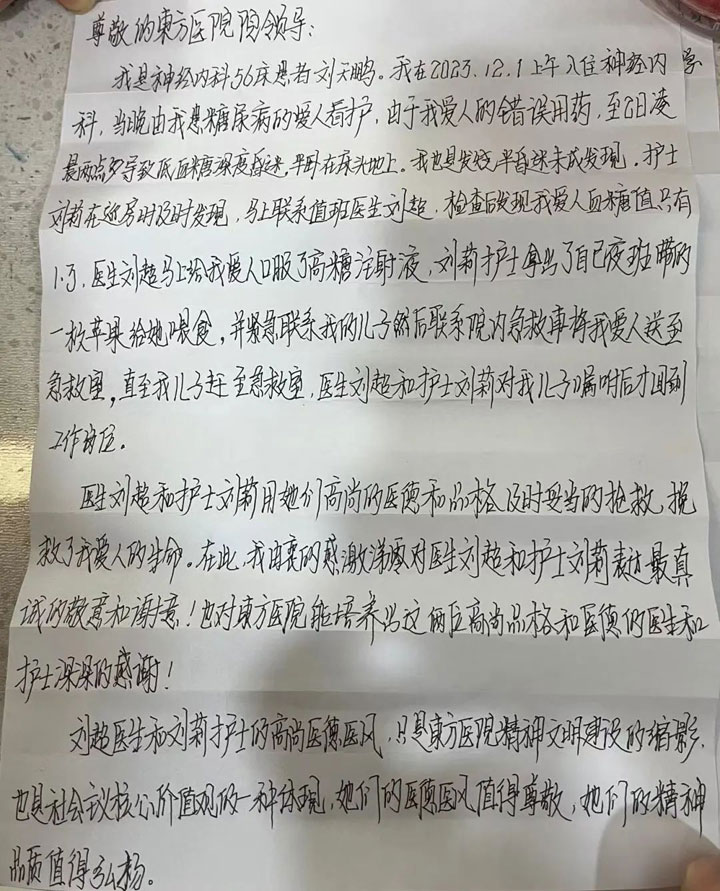 尊敬的東方医院院领导:
我是神经内科56床患者刘天鹏。我在2023.12.1上午入住神经内学
科,当晚由我患糖尿病的爱人看护,由于我爱人的错误用药,至2日凌
晨两点多导致低血糖深度昏迷,平卧在床头地上。我也是发烧半昏迷未成发现,护士
刘莉在巡房时及时发现,马上联系值班医生刘超,检查后发现我爱人血糖值只有
1.3,医生刘超马上给我爱人口服了高糖注射液,刘莉护士拿出了自己夜班带的
一枚苹果给她喂食,并紧急联系我的儿子然后联系院内急救车将我爱人送至
急救室,直至我儿子赶至急救室,医生刘超和护士刘莉对我儿子嘱咐后才回到
工作岗位.
医生刘超和护士刘莉用她们高尚的医德和品格,及时妥当的抢救,挽
救了我爱人的生命。在此,我由衷的感激涕零对医生刘超和护士刘莉表达最真
诚的敬意和谢意!也对東方医院能培养出这两位高尚品格和医德的医生和
护士深深的感谢!
刘超医生和刘莉护士的高尚医德医风,只是東方医院精神文明建设的缩影,
也是社会主义核心价值观的一种体现,她们的医德医风值得尊敬,她们的精神
品质值得弘杨。